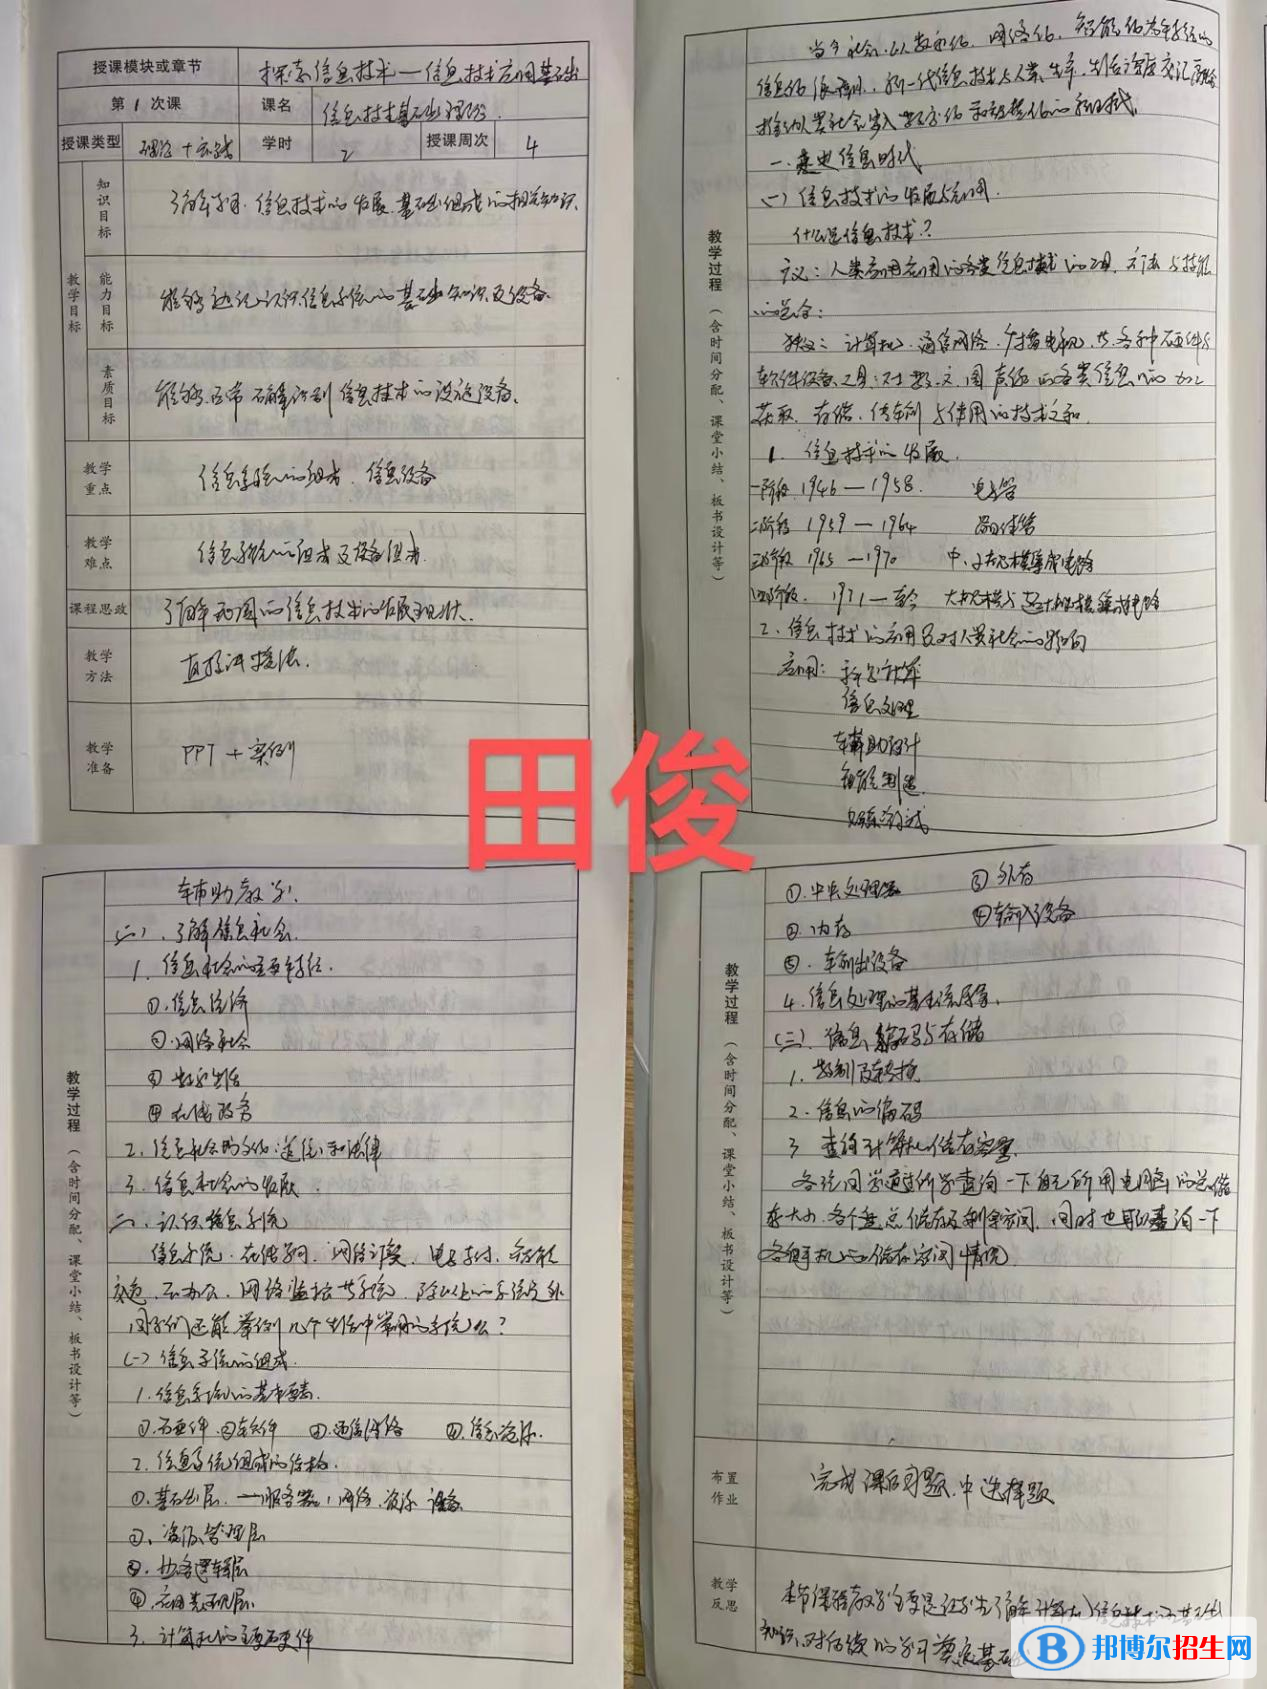 授课模块或章节 探索信息技术—信息技术应用基础
第1次课 课名 信息技术基础理论
授课类型 理论+实践 学时 2 授课周次 4
教学目标
知识目标 了解学习信息技术的发展、基础组成的相关知识、
能力目标 能够 认识信息系统的基础知识及设备、
素质目标 能够正常正确识别信息技术的设施设备、
教学重点 信息系统的组成、信息设备
教学难点 信息系统的组成及设备组成
课程思政 了解我国的信息技术的发展现状.
教学方法 直接讲授法.
教学准备 PPT+案例
田俊
教学过程（含时间分配、课堂小结、板书设计等）
当今社会,以数字化、网络化、智能化为特征的
信息化浪潮,新一代信息技术与人类生产、生活深度交汇融合
推动人类社会步入数字化和智慧化的新时代.
一、走进信息时代
(一)信息技术的发展与应用.
什么是信息技术?
广义:人类应用的各类信息技术的工具、方法与技能
的总合:
狭义:计算机、通信网络、广播电视,共各种硬件与
软件设备工具:对数、文、图声像的各类信息的加工
获取、存储、传输与使用的技术之和.
1.信息技术的发展.
一阶段 1946—1958. 电子管
二阶段 1959—1964 晶体管
三阶段 1965—1970 中、小规模集成电路
四阶段. 1971—至今 大规模与超大规模集成电路
2.信息技术的应用及对人类社会的影响
应用:科学计算
信息处理
辅助设计
智能制造
辅助教学.
(二)、了解信息社会.
1.信息社会的主要特征.
①.信息经济
②.网络社会
③数字生活
④在线政务
2.信息社会的文化、道德和法律
3.信息社会的发展.
二、认识信息系统
信息系统:在线学习、网络订票、电子支付、智能
交通、云办公、网络监控等系统,除以上的系统之外
同学们还能举例几个生活中常用的系统么?
(一)信息系统的组成.
1.信息系统的基本要素.
①.硬件 ②软件 ③通信网络 ④.信息资源.
2.信息系统组成的结构.
①.基础层.—服务器,网络、资源 设备
②.资源管理层
③.业务逻辑层
④.应用表现层
3.计算机的主要硬件
教学过程（含时间分配、课堂小结、板书设计等）
①.中央处理器 ③外存
②.内存 ④输入设备
⑤.输出设备
4.信息处理的基本流程.
(三).信息编码与存储
1.数制及转换
2.信息的编码
3 查询计算机储存容量.
各位同学通过所学查询一下自己所用电脑的总储
存大小,各个盘总储存及剩余空间.同时也可以查询一下
各自手机的储存空间情况
教学过程（含时间分配、课堂小结、板书设计等）
布置作业 完成课后习题中选择题
教学反思 本节课程教学主要是让学生了解计算机信息技术的基础
知识,对后续的学习奠定基础
邦博尔招生网